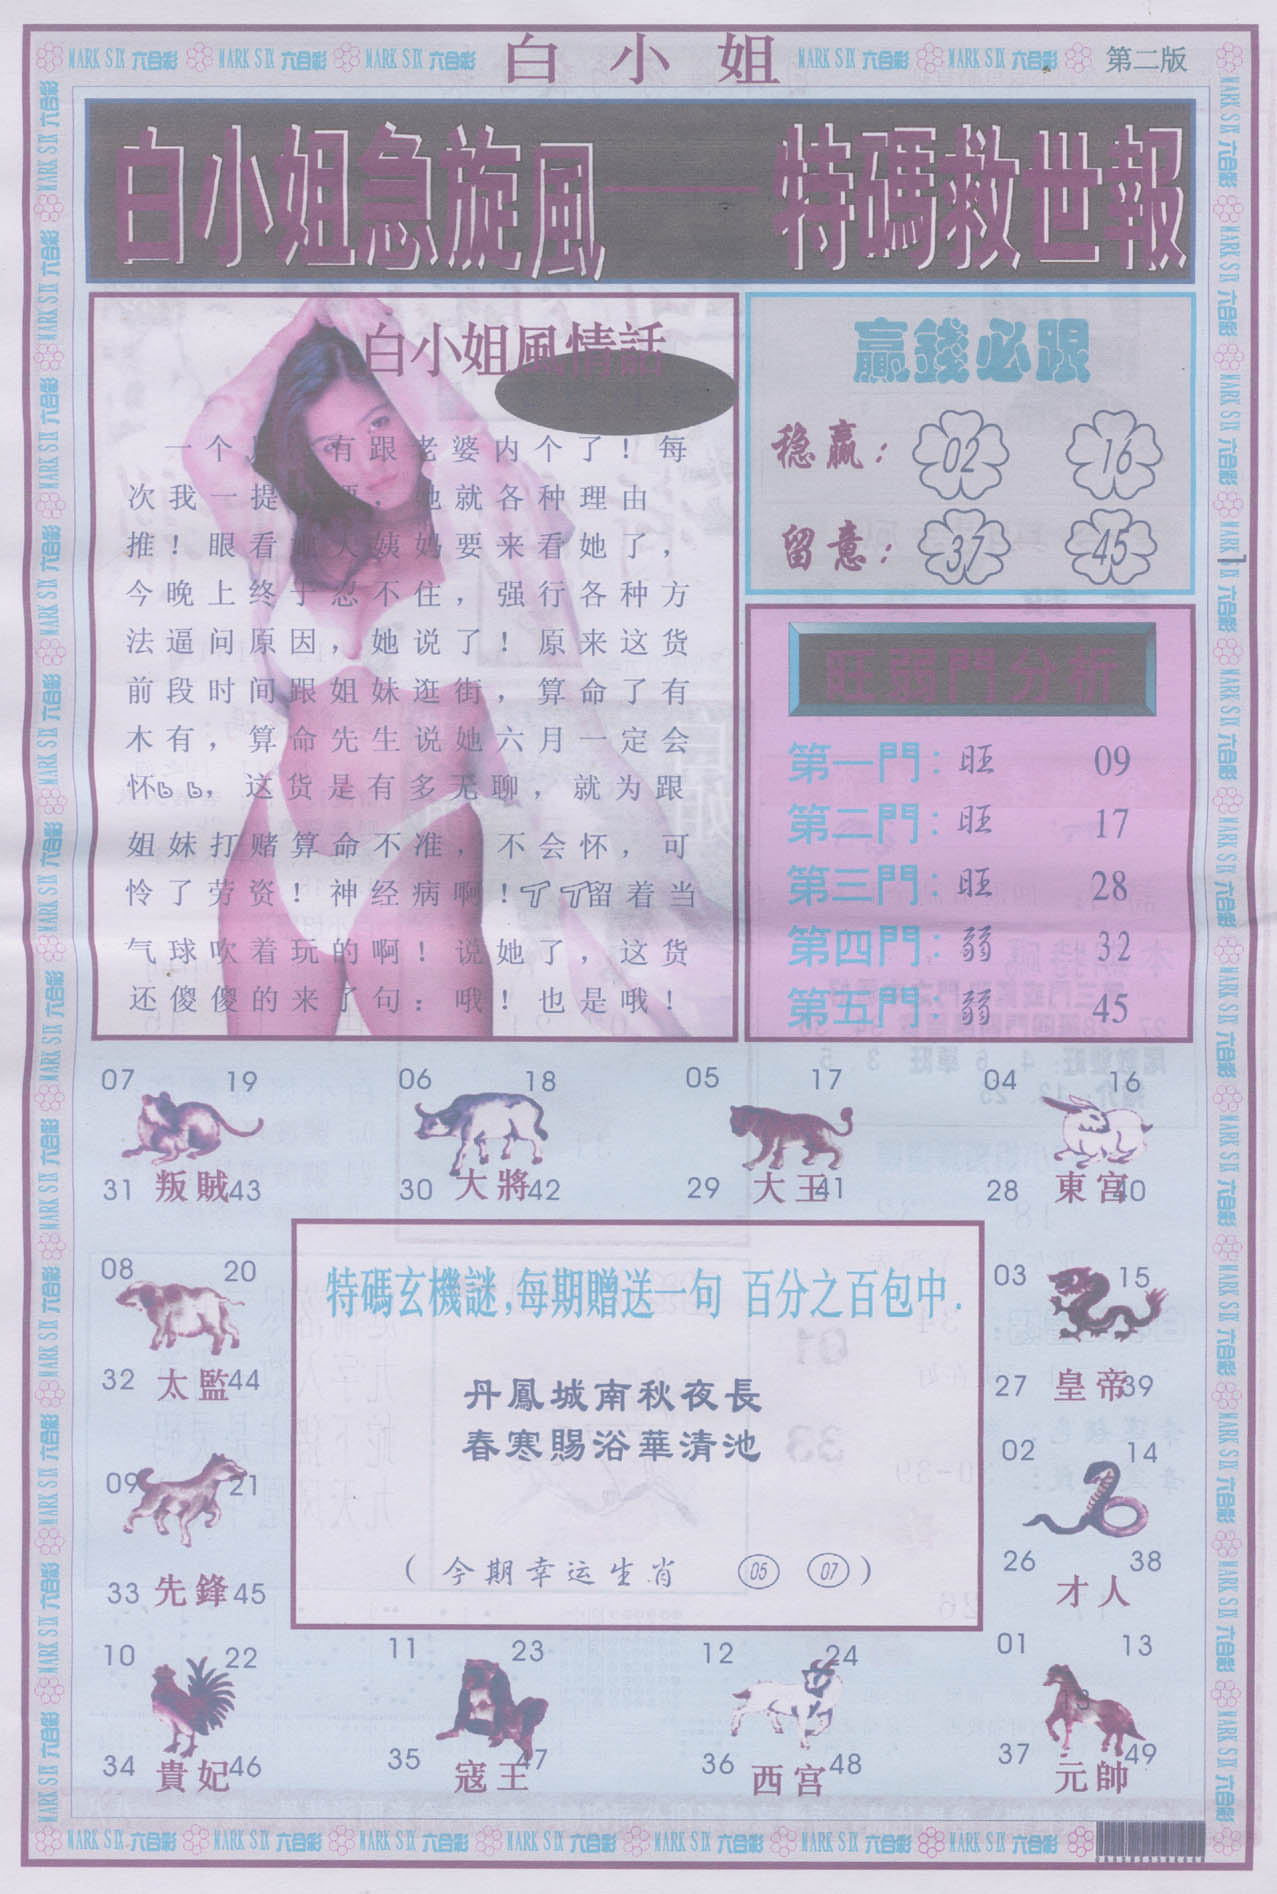 MARK SIX 六合彩 MARK SIX 六合彩 MARK SIX 六合彩 白小姐 MARK SIX 六合彩 MARK SIX 六合彩 第二版
白小姐急旋風——特碼救世報
白小姐風情話
一个月 有跟老婆内个了！每
次我一提 要，她就各种理由
推！眼看 大姨妈要来看她了，
今晚上终于忍不住，强行各种方
法逼问原因，她说了！原来这货
前段时间跟姐妹逛街，算命了有
木有，算命先生说她六月一定会
怀bb，这货是有多无聊，就为跟
姐妹打赌算命不准，不会怀，可
怜了劳资！神经病啊！TT留着当
气球吹着玩的啊！说她了，这货
还傻傻的来了句：哦！也是哦！
贏錢必跟
稳赢：02 16
留意：37 45
旺弱門分析
第一門：旺 09
第二門：旺 17
第三門：旺 28
第四門：弱 32
第五門：弱 45
07 19 06 18 05 17 04 16
31 叛賊 43 30 大將 42 29 大王 41 28 東宮 40
08 20
32 太監 44
09 21
33 先鋒 45
特碼玄機謎,每期贈送一句 百分之百包中.
丹鳳城南秋夜長
春寒賜浴華清池
（今期幸运生肖 05 07）
03 15
27 皇帝 39
02 14
26 才人 38
10 22 11 23 12 24 01 13
13
34 貴妃 46 35 寇王 47 36 西宮 48 37 元帥 49
MARK SIX 六合彩 MARK SIX 六合彩 MARK SIX 六合彩 MARK SIX 六合彩 MARK SIX 六合彩 MARK SIX 六合彩 MARK SIX 六合彩